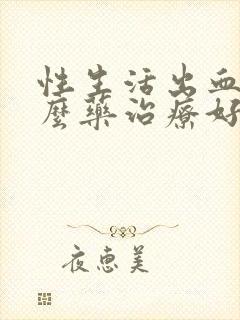 性生活出血
麼藥治療好
夜惠美